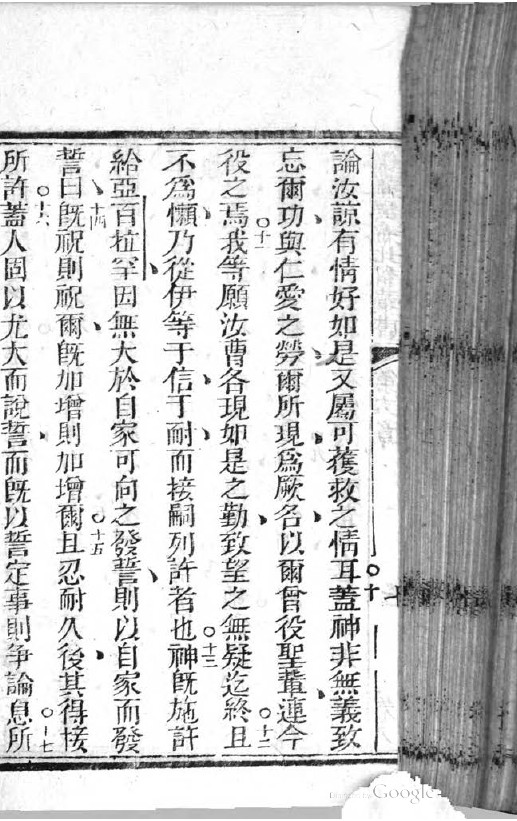 論汝諒有情好如是又屬可獲救之情耳○十蓋神非無義致
忘爾功與仁愛之勞爾所現爲厥名以爾曾役聖輩連今
役之焉○十一我等願汝曹各現如是之勤致望之無疑迄終○十二且
不爲懶乃從伊等于信于耐而接嗣列許者也○十三神旣施許
給亞百拉罕因無大於自家可向之發誓則以自家而發
誓○十四曰旣祝則祝爾旣加增則加增爾○十五且忍耐久後其得接
所許○十六蓋人固以尤大而說誓而旣以誓定事則爭論息○十七所
Google